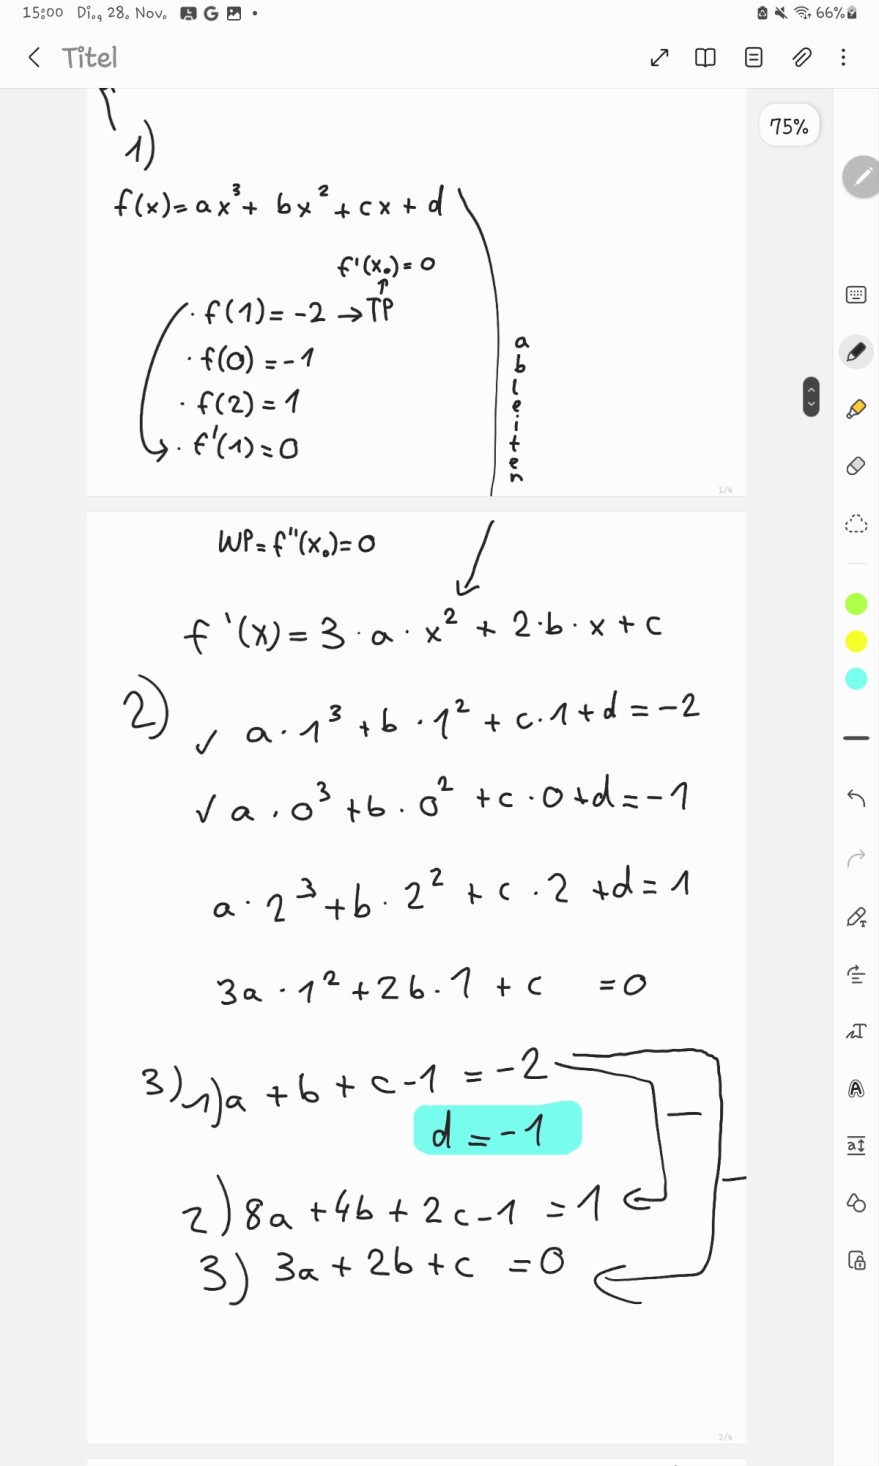 15:00 Di., 28. Nov. G
66%
Titel
75%
1)
f(x)=ax³+ bx²+cx+d
f'(x₀)=0
↑
· f(1)=-2 →TP
· f(0)=-1
· f(2)=1
· f'(1)=0
ableiten
1/4
WP=f''(x₀)=0
f'(x)=3·a·x²+2·b·x+c
2)
✓ a·1³+b·1²+c·1+d=-2
✓ a·0³+b·0²+c·0+d=-1
a·2³+b·2²+c·2+d=1
3a·1²+2b·1+c =0
3) 1)a+b+c-1=-2
d=-1
2) 8a+4b+2c-1=1
3) 3a+2b+c=0
2/4